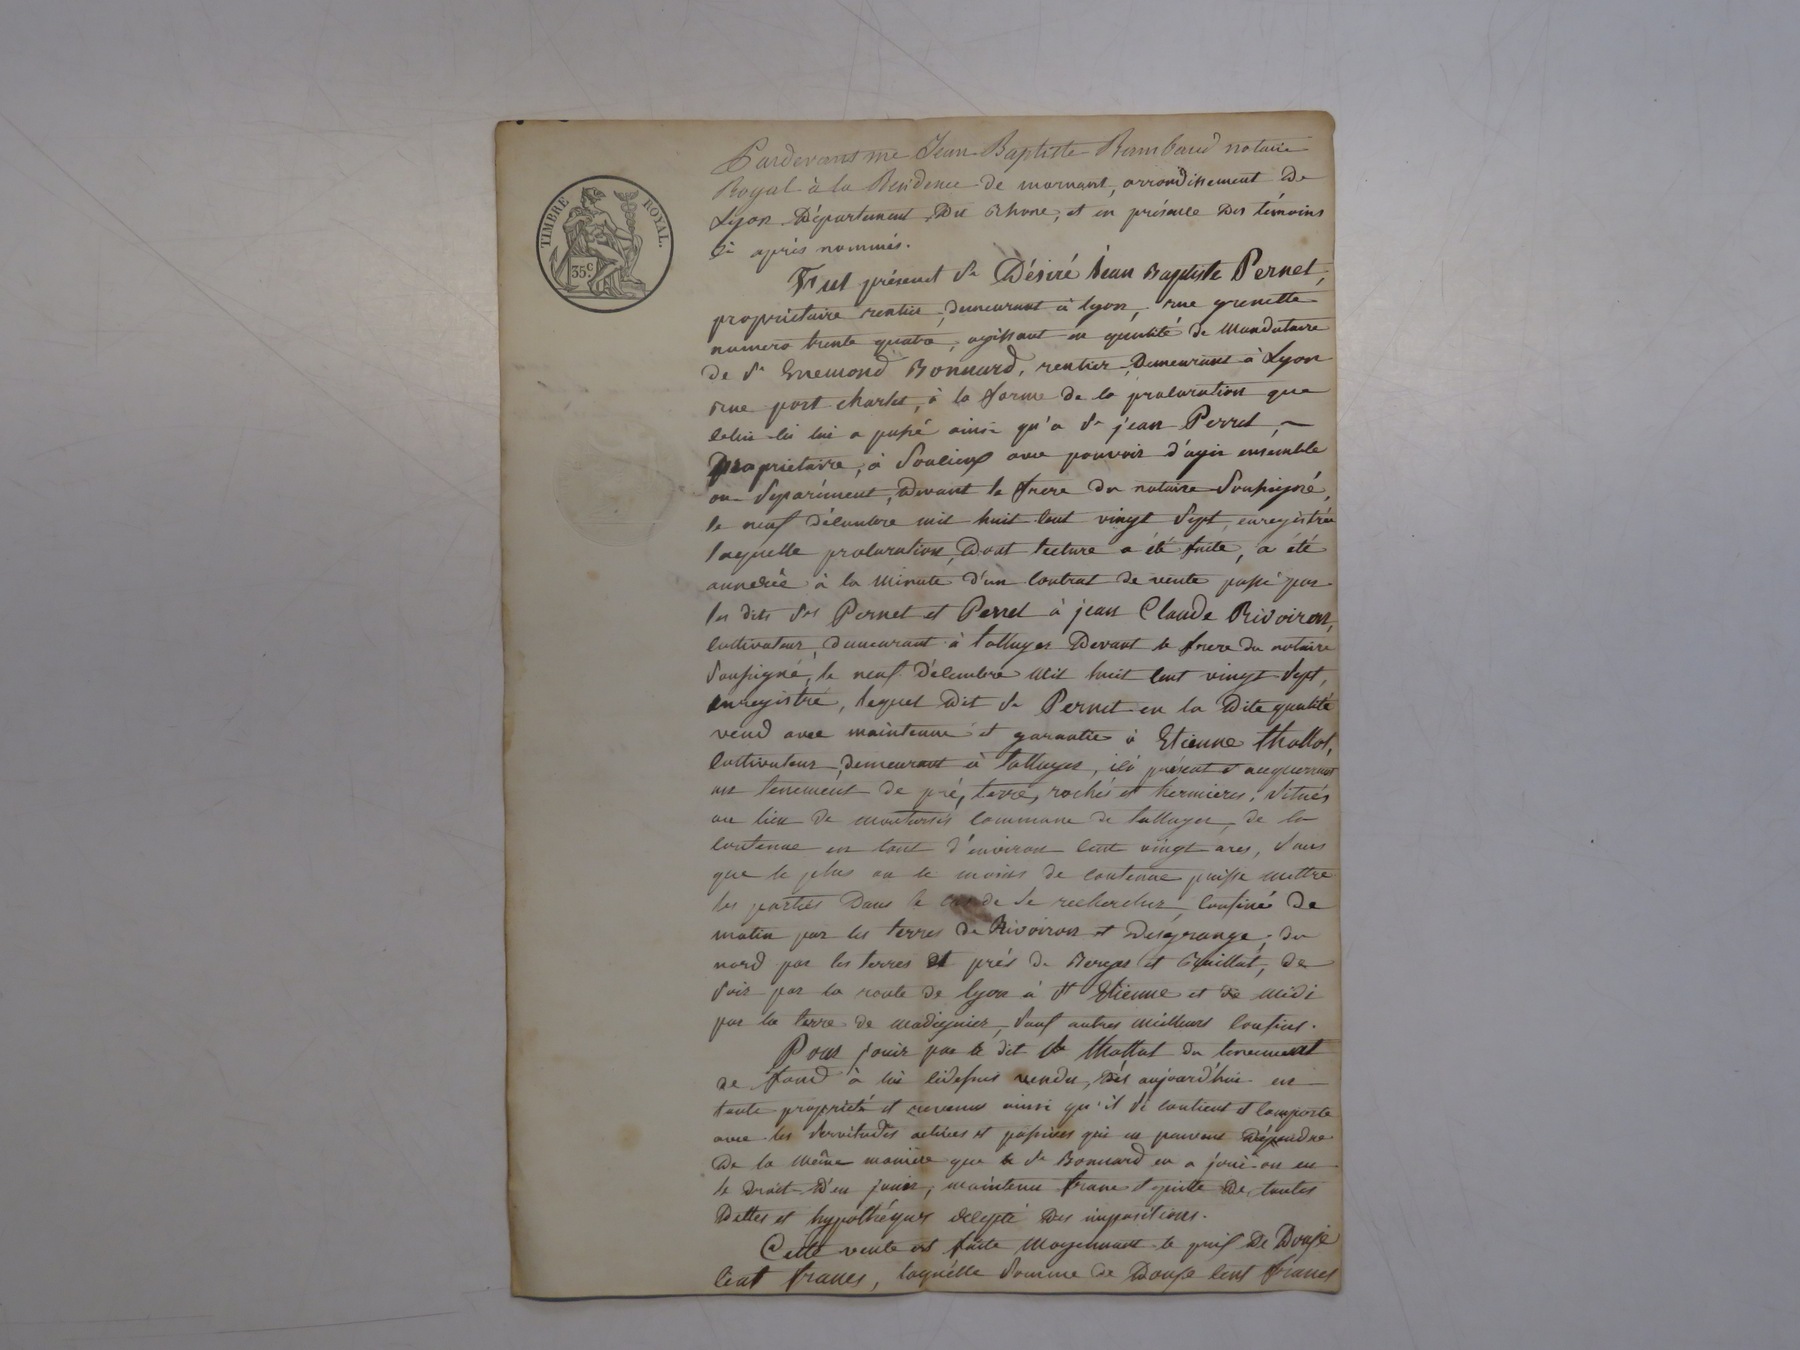 TIMBRE ROYAL.
35c.
Pardevant me Jean Baptiste Rambaud notaire
Royal à la Residence de mornant, arrondissement De
Lyon Département Du Rhone, et en présence Des témoins
Ci après nommés.
Fut présent Sr Désiré Jean Baptiste Pernet,
propriétaire rentier, demeurant à lyon, rue grenette
numero trente quatre, agissant en qualité de Mandataire
de Sr Enemond Bonnard, rentier, Demeurant à Lyon
rue port charlet, à la forme de la procuration que
celui ci lui a passé ainsi qu'a Sr jean Perret,
Propriétaire, à Soucieux avec pouvoir d'agir ensemble
ou Séparément, Devant le frere du notaire Soussigné,
le neuf Décembre mil huit Cent vingt Sept, enregistrée
laquelle procuration, Dont lecture a été faite, a été
annexée à la Minute d'un Contrat de vente passé par
les dits Srs Pernet et Perret à jean Claude Rivoiron,
Cultivateur, demeurant à talluyes Devant le frere du notaire
Soussigné, le neuf Décembre Mil huit Cent vingt Sept,
enregistré, lequel Dit Sr Pernet en la Dite qualité
vend avec maintenue et garantie à Etienne thollot,
Cultivateur, demeurant à talluyes, ici présent et acquereur
un tenement de pré, terre, rochés et hermieres, Situés
au lieu de commune de talluyes, de la
Contenue en tout d'environ Cent vingt ares, Sans
que le plus ou le moins de contenue puisse mettre
les parties Dans le cas de Se rechercher, Confiné De
matin par les terres De Rivoiron et Désgrange, du
nord par les terres et prés de Berger et, De
Soir par la route de lyon à St Etienne et de Midi
par la terre de, Sauf autres Meilleurs Confins.
Pour jouir par le dit Sr thollot du tenement
de fond à lui Cidessus vendu, Dès aujourd'hui en
toute propriété et revenus ainsi qu'il Se contient et Comporte
avec les Servitudes actives et passives qui en peuvent Dépendre
De la Même manière que le Sr Bonnard en a joui ou eu
le Droit D'en jouir, maintenu franc et quitte De toutes
Dettes et hypothéques excepté Des impositions.
Cette vente est faite Moyennant le prix De Douze
Cent francs, laquelle Somme de Douze Cent francs